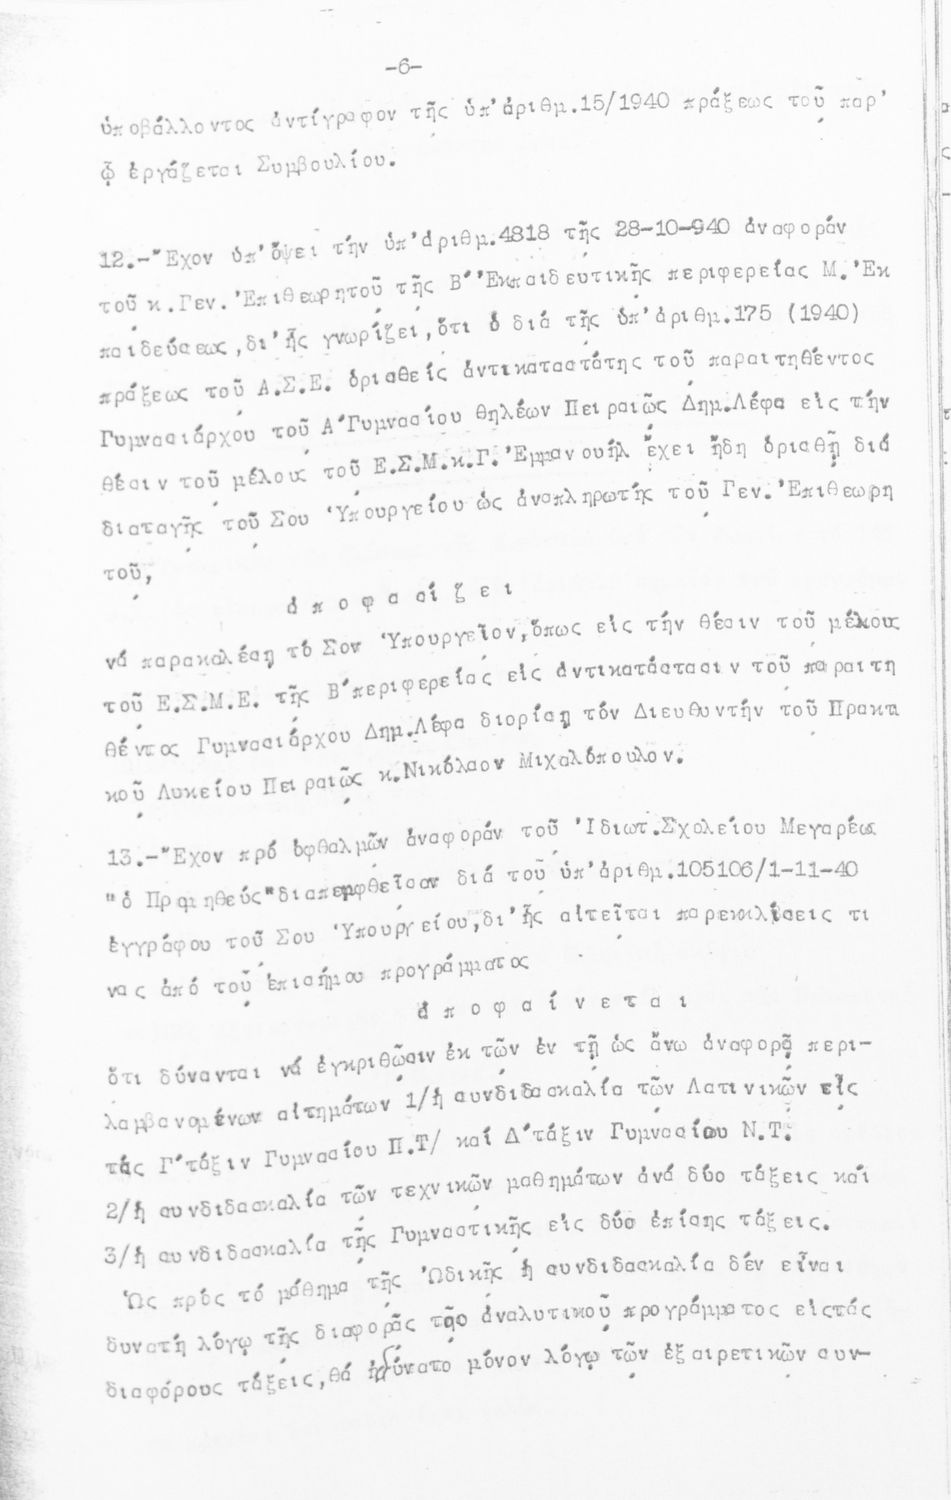 -6-
ὑποβάλλοντος ἀντίγραφον τῆς ὑπ'ἀριθμ.15/1940 πράξεως τοῦ παρ'
ᾧ ἐργάζεται Συμβουλίου.
12.-Ἔχον ὑπ'ὄψει τήν ὑπ'ἀριθμ.4818 τῆς 28-10-940 ἀναφοράν
τοῦ κ.Γεν.Ἐπιθεωρητοῦ τῆς Β΄Ἐκπαιδευτικῆς περιφερείας Μ.Ἐκ
παιδεύσεως,δι'ἧς γνωρίζει,ὅτι ὁ διά τῆς ὑπ'ἀριθμ.175 (1940)
πράξεως τοῦ Α.Σ.Ε. ὁρισθείς ἀντικαταστάτης τοῦ παραιτηθέντος
Γυμνασιάρχου τοῦ Α΄Γυμνασίου θηλέων Πειραιῶς Δημ.Λέφα εἰς τήν
θέσιν τοῦ μέλους τοῦ Ε.Σ.Μ.κ.Γ.Ἐμμανουήλ ἔχει ἤδη ὁρισθῆ διά
διαταγῆς τοῦ Σου Ὑπουργείου ὡς ἀναπληρωτής τοῦ Γεν.Ἐπιθεωρη
τοῦ,
ἀ π ο φ α σ ί ζ ε ι
νά παρακαλέσῃ τό Σον Ὑπουργεῖον,ὅπως εἰς τήν θέσιν τοῦ μέλους
τοῦ Ε.Σ.Μ.Ε. τῆς Β΄περιφερείας εἰς ἀντικατάστασιν τοῦ παραιτη
θέντος Γυμνασιάρχου Δημ.Λέφα διορίσῃ τόν Διευθυντήν τοῦ Πρακτι
κοῦ Λυκείου Πειραιῶς κ.Νικόλαον Μιχαλόπουλον.
13.-Ἔχον πρό ὀφθαλμῶν ἀναφοράν τοῦ Ἰδιωτ.Σχολείου Μεγαρέως
"ὁ Προμηθεύς"διαπεμφθεῖσαν διά τοῦ ὑπ'ἀριθμ.105106/1-11-40
ἐγγράφου τοῦ Σου Ὑπουργείου,δι'ἧς αἰτεῖται παρεκκλίσεις τι
νας ἀπό τοῦ ἐπισήμου προγράμματος
ἀ π ο φ α ί ν ε τ α ι
ὅτι δύνανται νά ἐγκριθῶσιν ἐκ τῶν ἐν τῇ ὡς ἄνω ἀναφορᾷ περι-
λαμβανομένων αἰτημάτων 1/ἡ συνδιδασκαλία τῶν Λατινικῶν εἰς
τάς Γ΄τάξιν Γυμνασίου Π.Τ/ καί Δ΄τάξιν Γυμνασίου Ν.Τ.
2/ἡ συνδιδασκαλία τῶν τεχνικῶν μαθημάτων ἀνά δύο τάξεις καί
3/ἡ συνδιδασκαλία τῆς Γυμναστικῆς εἰς δύο ἐπίσης τάξεις.
Ὡς πρός τό μάθημα τῆς Ὠδικῆς ἡ συνδιδασκαλία δέν εἶναι
δυνατή λόγῳ τῆς διαφορᾶς τοῦ ἀναλυτικοῦ προγράμματος εἰςτάς
διαφόρους τάξεις,θά ἠδύνατο μόνον λόγῳ τῶν ἐξαιρετικῶν συν-